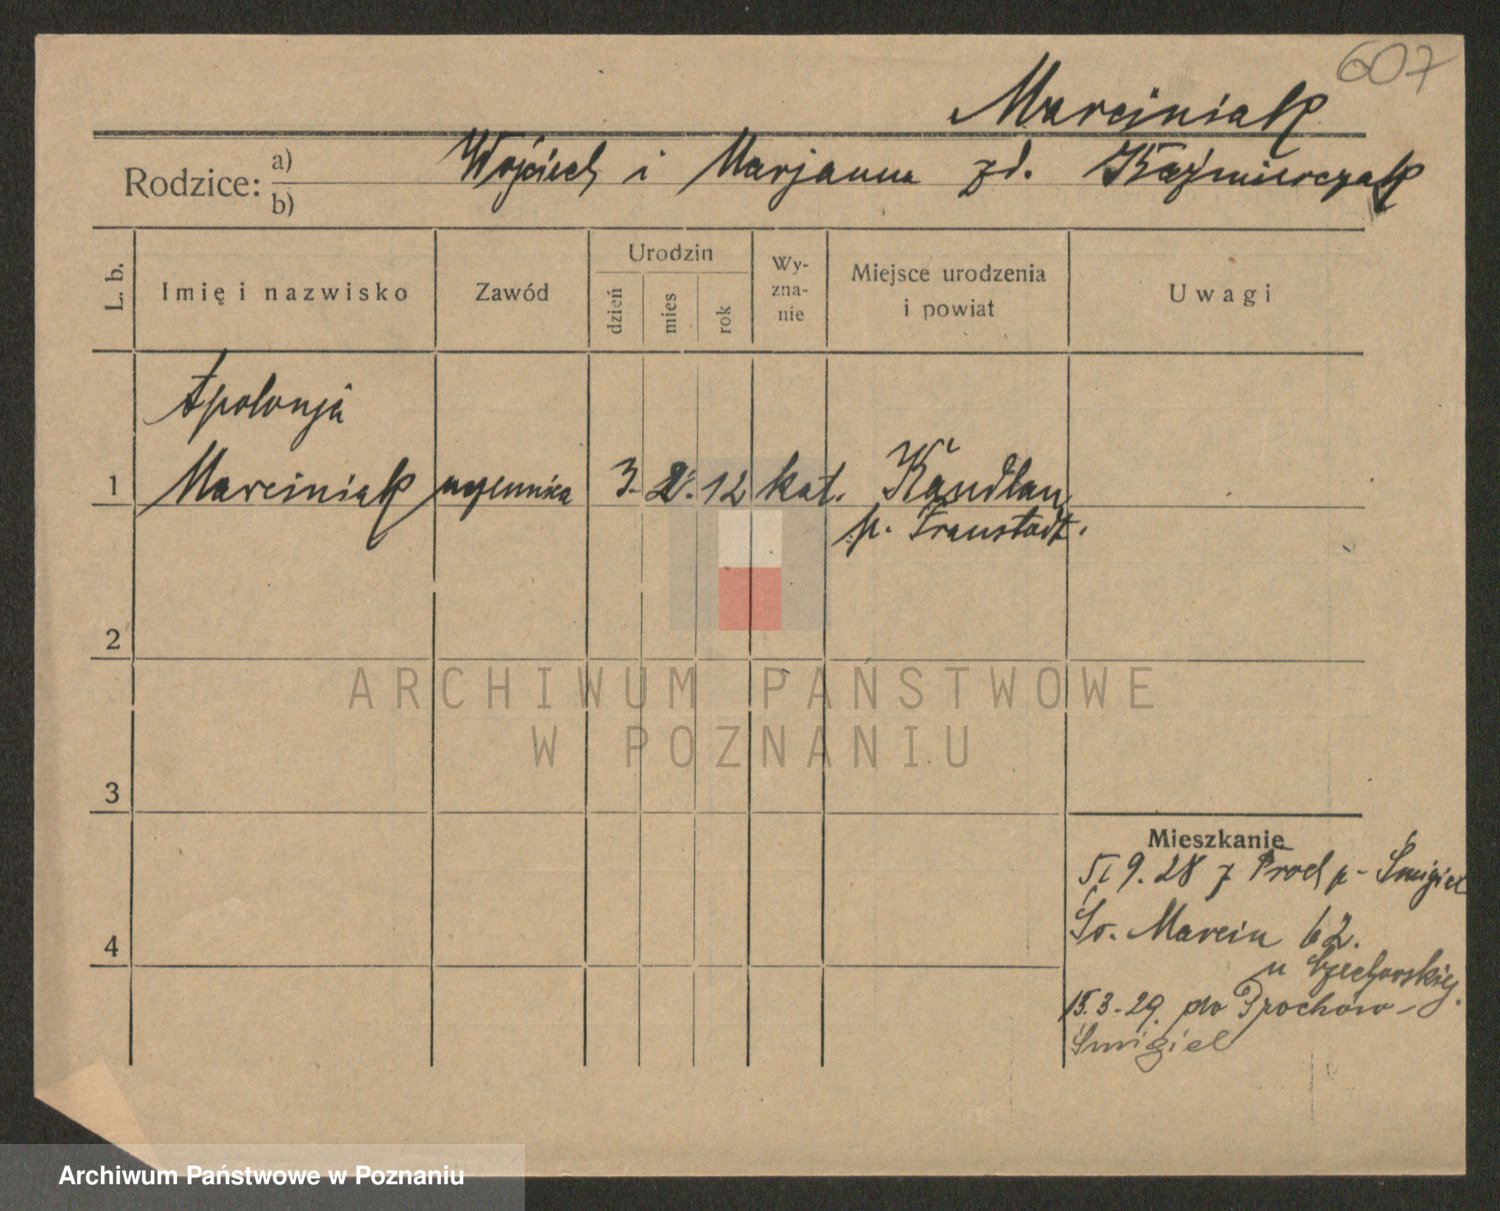 607
Marciniak
Rodzice: a)
b)
Wojciech i Marjanna zd. Kaźmierczak
L. b.
Imię i nazwisko
Zawód
Urodzin
dzień
mies
rok
Wy-
zna-
nie
Miejsce urodzenia
i powiat
Uwagi
Apolonja
1 Marciniak uczennica 3. 2. 12 kat. Kandlau
p. Fraustadt.
2
3
4
Mieszkanie
5/9.28 z Proch p- Śmigiel
Św. Marcin 62.
u
15.3-29. do Prochów-
Śmigiel
ARCHIWUM PAŃSTWOWE
W POZNANIU
Archiwum Państwowe w Poznaniu